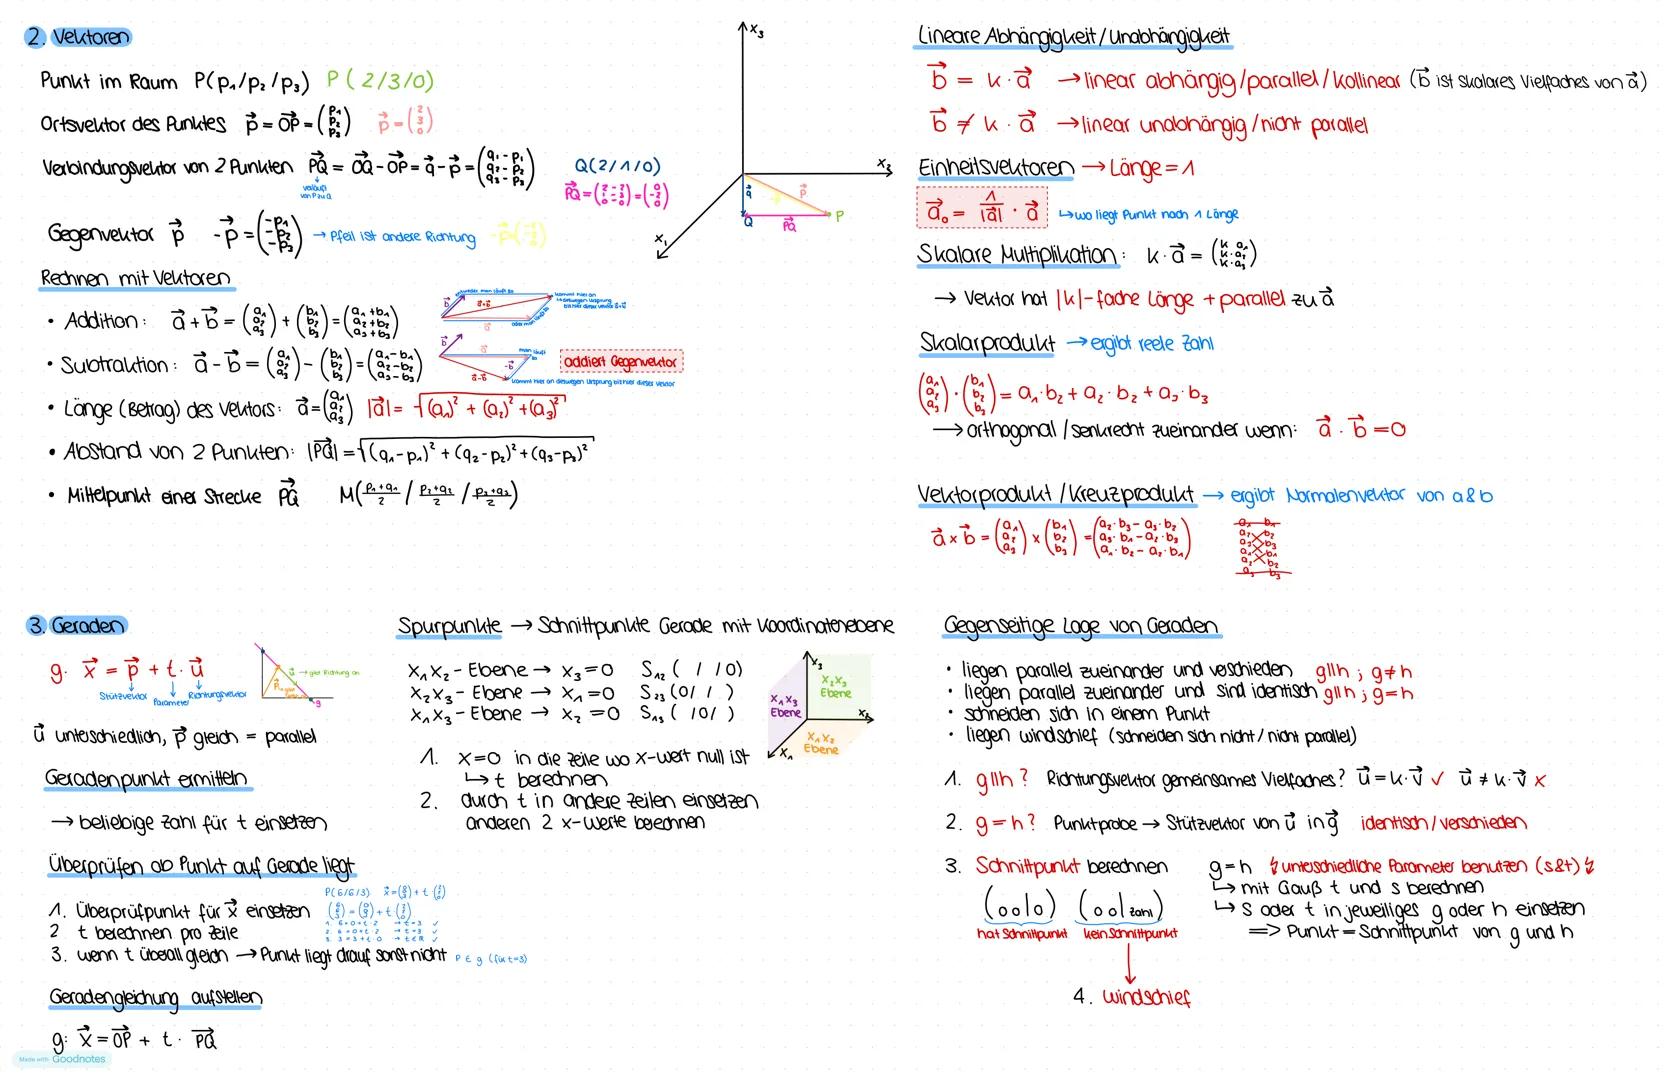 2. Vektoren
Punkt im Raum P(p₁/p₂/p₃) P(2/3/0)
Ortsvektor des Punktes p⃗ = OP⃗ = (p₁ p₂ p₃) p⃗ = (2 3 0)
Verbindungsvektor von 2 Punkten PQ⃗ = OQ⃗ - OP⃗ = q⃗ - p⃗ = (q₁-p₁ q₂-p₂ q₃-p₃)
verläuft von P zu Q
Q(2/1/0)
PQ⃗ = (2-2 1-3 0-0) = (0 -2 0)
Gegenvektor p⃗ -p⃗ = (-p₁ -p₂ -p₃) → Pfeil ist andere Richtung
x₃
x₂
x₁
q⃗
p⃗
Q
PQ⃗
P
Rechnen mit Vektoren
• Addition: a⃗ + b⃗ = (a₁ a₂ a₃) + (b₁ b₂ b₃) = (a₁+b₁ a₂+b₂ a₃+b₃)
entweder man läuft so
b⃗
a⃗+b⃗
a⃗
oder man läuft so
kommt hier an
↳ deswegen Ursprung
bis hier dieser Vektor a⃗+b⃗
• Subtraktion: a⃗ - b⃗ = (a₁ a₂ a₃) - (b₁ b₂ b₃) = (a₁-b₁ a₂-b₂ a₃-b₃)
b⃗
a⃗
man läuft so
-b⃗
a⃗-b⃗
kommt hier an deswegen Ursprung bis hier dieses Vektor
addiert Gegenvektor
• Länge (Betrag) des Vektors: a⃗ = (a₁ a₂ a₃) |a⃗| = √(a₁)² + (a₂)² + (a₃)²
• Abstand von 2 Punkten: |PQ⃗| = √(q₁-p₁)² + (q₂-p₂)² + (q₃-p₃)²
• Mittelpunkt einer Strecke PQ⃗ M(p₁+q₁/2 / p₂+q₂/2 / p₃+q₃/2)
Lineare Abhängigkeit/Unabhängigkeit
b⃗ = k · a⃗ → linear abhängig/parallel/kollinear (b⃗ ist skalares Vielfaches von a⃗)
b⃗ ≠ k · a⃗ → linear unabhängig/nicht parallel
Einheitsvektoren → Länge = 1
a⃗₀ = 1/|a⃗| · a⃗ ↳ wo liegt Punkt nach 1 Länge
Skalare Multiplikation: k · a⃗ = (k·a₁ k·a₂ k·a₃)
→ Vektor hat |k|-fache Länge + parallel zu a⃗
Skalarprodukt → ergibt reele Zahl
(a₁ a₂ a₃) · (b₁ b₂ b₃) = a₁·b₂ + a₂·b₂ + a₃·b₃
→ orthogonal/senkrecht zueinander wenn: a⃗ · b⃗ = 0
Vektorprodukt/Kreuzprodukt → ergibt Normalenvektor von a & b
a⃗ × b⃗ = (a₁ a₂ a₃) × (b₁ b₂ b₃) = (a₂·b₃ - a₃·b₂ a₃·b₁ - a₁·b₃ a₁·b₂ - a₂·b₁)
a₁ b₁
a₂ b₂
a₃ b₃
a₁ b₁
a₂ b₂
a₃ b₃
3. Geraden
g: x⃗ = p⃗ + t · u⃗
Stützvektor
Parameter
Richtungsvektor
u⃗ → gibt Richtung an
g
u⃗ unterschiedlich, p⃗ gleich = parallel
Geradenpunkt ermitteln
→ beliebige Zahl für t einsetzen
Überprüfen ob Punkt auf Gerade liegt
P(6/6/3) x⃗ = (0 0 3) + t·(2 2 0)
(6 6 3) = (0 0 3) + t·(2 2 0)
1. 6=0+t·2 → t=3 ✓
2. 6=0+t·2 → t=3 ✓
3. 3=3+t·0 → t∈R ✓
1. Überprüfpunkt für x⃗ einsetzen
2 t berechnen pro Zeile
3. wenn t überall gleich → Punkt liegt drauf sonst nicht P ∈ g (für t=3)
Geradengleichung aufstellen
g: x⃗ = OP⃗ + t · PQ⃗
Spurpunkte → Schnittpunkte Gerade mit Koordinatenebene
x₁x₂ - Ebene → x₃ = 0 S₁₂ ( / /0)
x₂x₃ - Ebene → x₁ = 0 S₂₃ (0/ / )
x₁x₃ - Ebene → x₂ = 0 S₁₃ ( /0/ )
x₃
x₂x₃ Ebene
x₁x₃ Ebene
x₂
x₁x₂ Ebene
x₁
1. x=0 in die Zeile wo x-wert null ist
↳ t berechnen
2. durch t in andere Zeilen einsetzen
anderen 2 x-Werte berechnen
Gegenseitige Lage von Geraden
• liegen parallel zueinander und veschieden g||h ; g≠h
• liegen parallel zueinander und sind identisch g||h ; g=h
• schneiden sich in einem Punkt
• liegen windschief (schneiden sich nicht/nicht parallel)
1. g||h ? Richtungsvektor gemeinsames Vielfaches? u⃗ = k·v⃗ ✓ u⃗ ≠ k·v⃗ x
2. g=h? Punktprobe → Stützvektor von u⃗ in g⃗ identisch/verschieden
3. Schnittpunkt berechnen
(0 0 | 0) (0 0 | Zahl)
hat Schnittpunkt kein Schnittpunkt
4. windschief
g=h ↯ unterschiedliche Parameter benutzen (s&t) ↯
↳ mit Gauß t und s berechnen
↳ s oder t in jeweiliges g oder h einsetzen
=> Punkt = Schnittpunkt von g und h
Made with Goodnotes